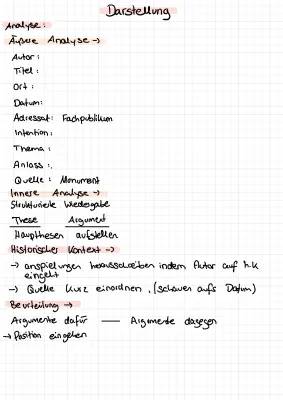 Darstellung
Analyse:
Äußere Analyse →
Autor:
Titel:
Ort:
Datum:
Adressat: Fachpublikum
Intention:
Thema:
Anlass:
Quelle: Monument
Innere Analyse →
Strukturierte Wiedergabe
These Argument
Haupthesen aufstellen
Historischer Kontext →
→ anspielungen herausschreiben indem Autor auf h.k
eingeht
→ Quelle kurz einordnen, (schauen aufs Datum)
Beurteilung →
Argumente dafür — Argumente dagegen
→ Position eingehen